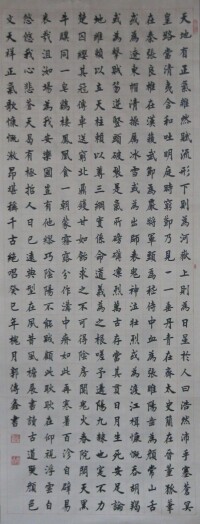 天地有正氣雜然賦流形下則為河嶽上則為日星於人曰浩然沛乎塞蒼冥
皇路當清夷含和吐明庭時窮節乃見一一垂丹青在齊太史簡在晉董狐筆
在秦張良椎在漢蘇武節為嚴將軍頭為嵇侍中血為張睢陽齒為顏常山舌
或為遼東帽清操厲冰雪或為出師表鬼神泣壯烈或為渡江楫慷慨吞胡羯
或為擊賊笏逆豎頭破裂是氣所磅礴凜烈萬古存當其貫日月生死安足論
地維賴以立天柱賴以尊三綱實係命道義為之根嗟予遘陽九隸也實不力
楚囚纓其冠傳車送窮北鼎鑊甘如飴求之不可得陰房闐鬼火春院閟天黑
牛驥同一皂雞棲鳳凰食一朝蒙霧露分作溝中瘠如此再寒暑百沴自辟易
哀哉沮洳場為我安樂國豈有他繆巧陰陽不能賊顧此耿耿在仰視浮雲白
悠悠我心悲蒼天曷有極哲人日已遠典型在夙昔風檐展書讀古道照顏色
文天祥正氣歌慷慨激昂堪稱千古絕唱癸巳年槐月郭傳鑫書